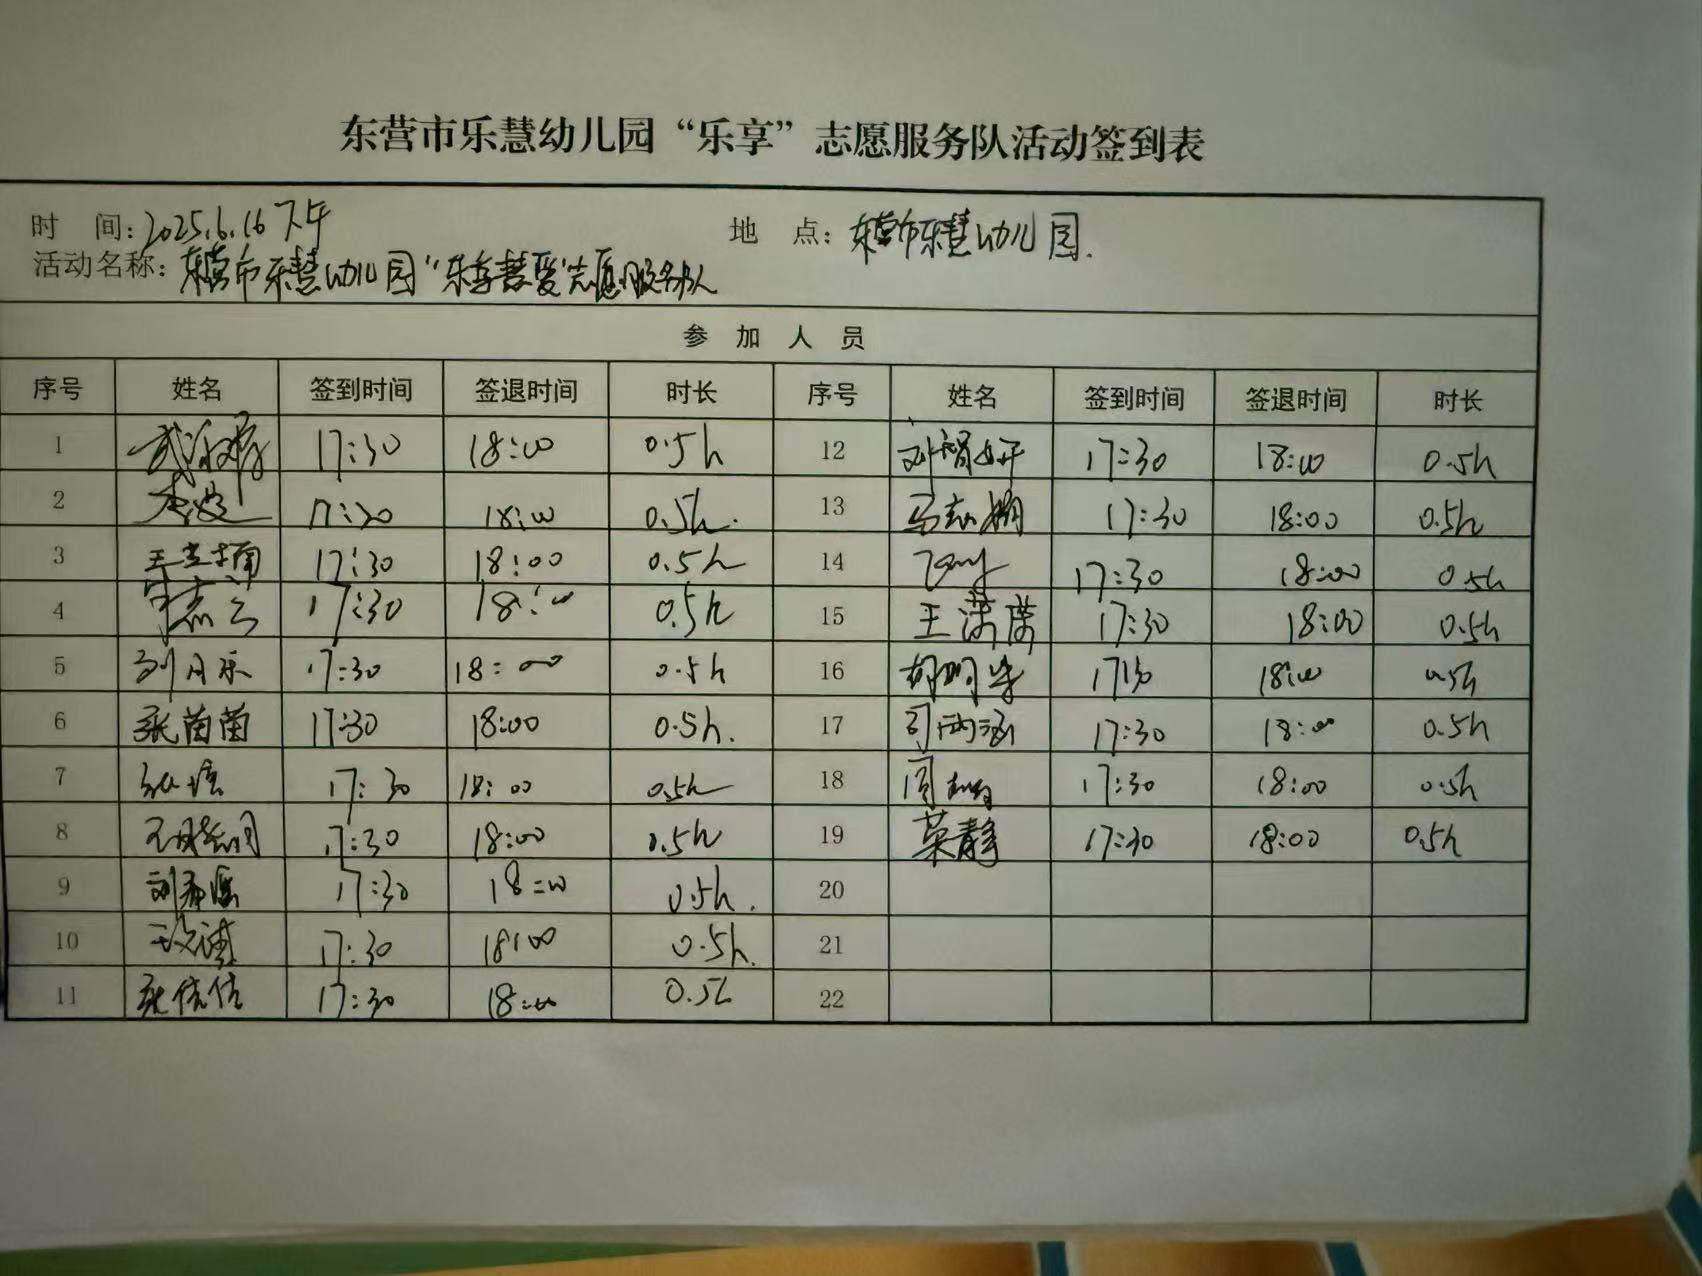 东营市乐慧幼儿园“乐享”志愿服务队活动签到表
时 间:2025.6.16下午 地 点:东营市乐慧幼儿园.
活动名称:东营市乐慧幼儿园“乐享慧爱”志愿服务队
参 加 人 员
序号 姓名 签到时间 签退时间 时长 序号 姓名 签到时间 签退时间 时长
1 17:30 18:00 0.5h 12 17:30 18:00 0.5h
2 17:30 18:00 0.5h. 13 17:30 18:00 0.5h
3 17:30 18:00 0.5h 14 17:30 18:00 0.5h
4 17:30 18:00 0.5h 15 王潇潇 17:30 18:00 0.5h
5 刘月乐 17:30 18:00 0.5h 16 17:30 18:00 0.5h
6 张茵茵 17:30 18:00 0.5h. 17 司雨涵 17:30 18:00 0.5h
7 17:30 18:00 0.5h 18 17:30 18:00 0.5h
8 17:30 18:00 0.5h 19 英静 17:30 18:00 0.5h
9 17:30 18:00 0.5h. 20
10 17:30 18:00 0.5h. 21
11 张倩倩 17:30 18:00 0.5h 22